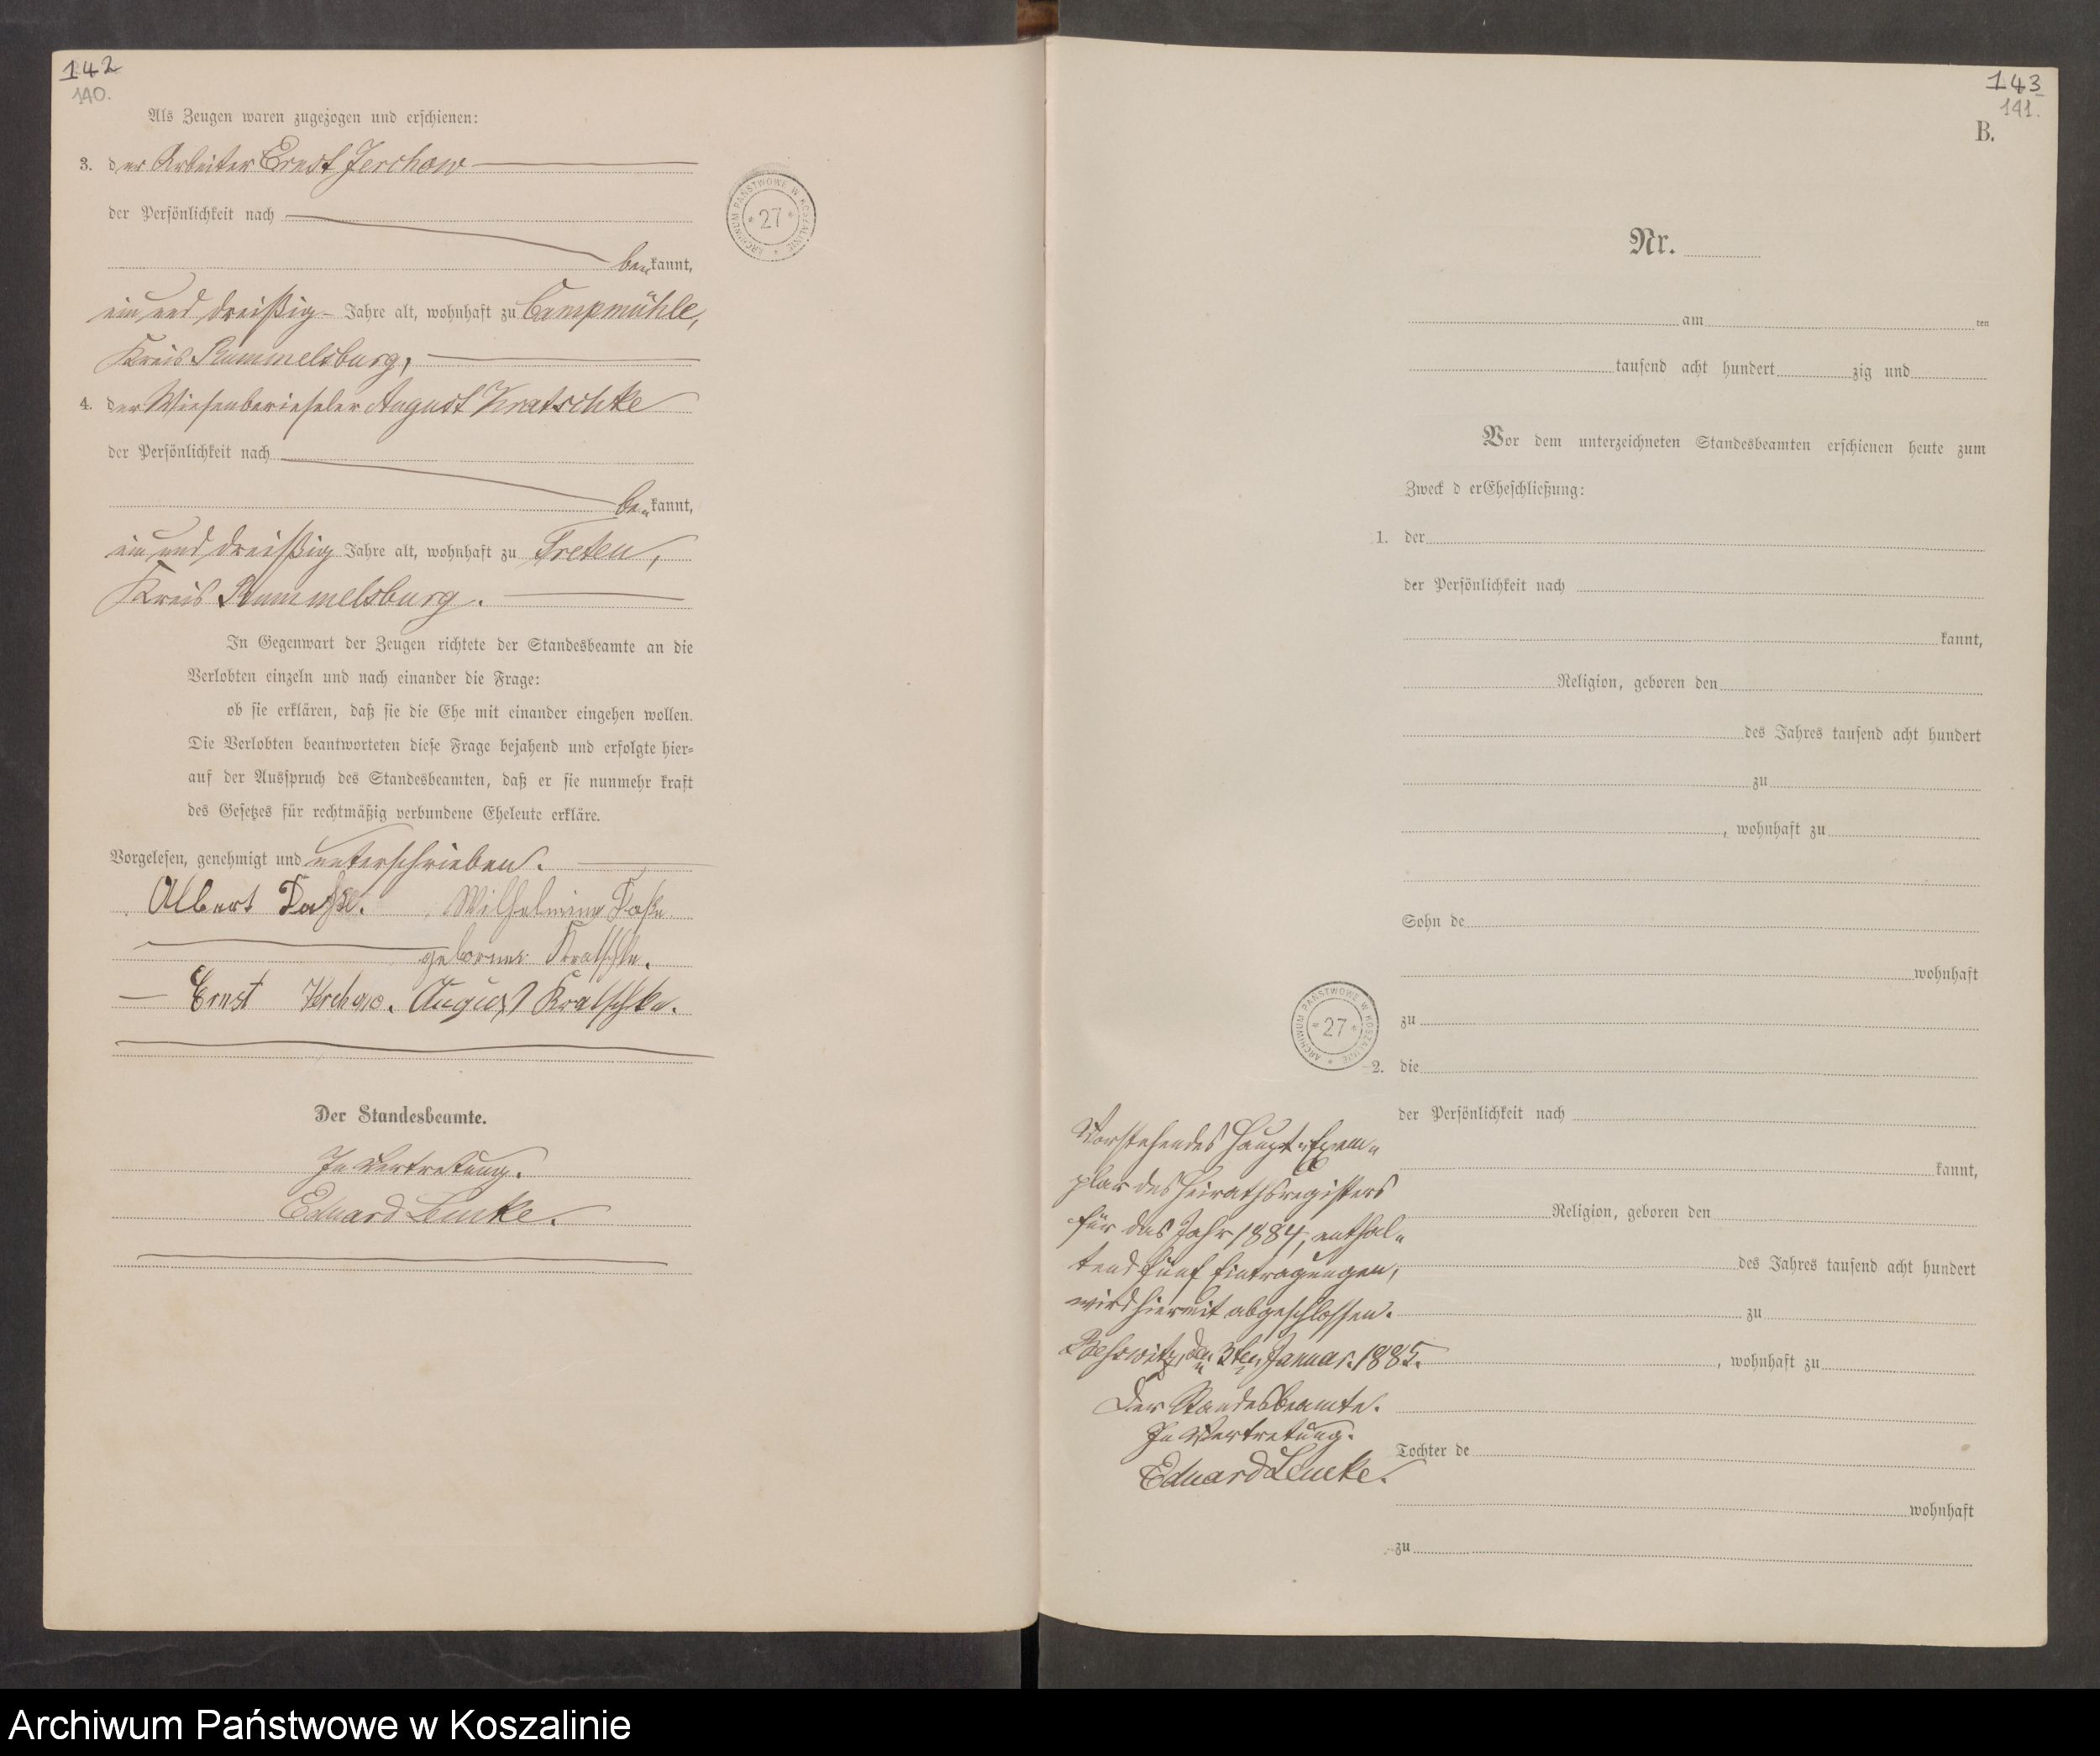 142
140.
Als Zeugen waren zugezogen und erschienen:
3. der Arbeiter Ernst Jerchow
der Persönlichkeit nach
be„kannt,
ein und dreißig Jahre alt, wohnhaft zu Campmühle,
Kreis Rummelsburg,
4. der Wiesenberieseler August Kratschke
der Persönlichkeit nach
be„kannt,
ein und dreißig Jahre alt, wohnhaft zu Treten,
Kreis Rummelsburg.
In Gegenwart der Zeugen richtete der Standesbeamte an die
Verlobten einzeln und nach einander die Frage:
ob sie erklären, daß sie die Ehe mit einander eingehen wollen.
Die Verlobten beantworteten diese Frage bejahend und erfolgte hier=
auf der Ausspruch des Standesbeamten, daß er sie nunmehr kraft
des Gesetzes für rechtmäßig verbundene Eheleute erkläre.
Vorgelesen, genehmigt und unterschrieben.
Albert Wilhelmine
geborene Kratschke.
Ernst Jerchow. August Kratschke.
Der Standesbeamte.
In Vertretung.
Eduard Lemke.
ARCHIWUM PAŃSTWOWE W KOSZALINIE
* 27 *
143
141.
B.
Nr.
am ten
tausend acht hundert zig und
Vor dem unterzeichneten Standesbeamten erschienen heute zum
Zweck d er Eheschließung:
1. der
der Persönlichkeit nach
kannt,
Religion, geboren den
des Jahres tausend acht hundert
zu
, wohnhaft zu
Sohn de
wohnhaft
zu
ARCHIWUM PAŃSTWOWE W KOSZALINIE
* 27 *
2. die
der Persönlichkeit nach
kannt,
Religion, geboren den
des Jahres tausend acht hundert
zu
, wohnhaft zu
Tochter de
wohnhaft
zu
Vorstehendes Haupt„Exem„
plar des Heirathsregisters
für das Jahr 1884, enthal„
tend fünf Eintragungen,
wird hiermit abgeschlossen.
den 3ten Januar 1885.
Der Standesbeamte.
In Vertretung.
Eduard Lemke.
Archiwum Państwowe w Koszalinie